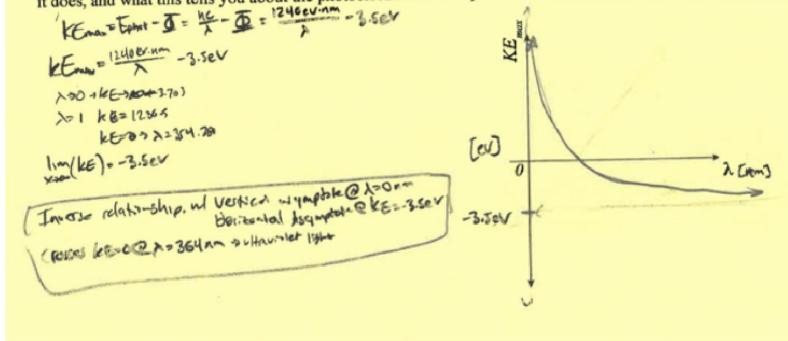 It does, and what this tells you about the
KEmax = Ephot - Φ = hc/λ - Φ = 1240eV·nm/λ - 3.5eV
KEmax = 1240eV·nm/λ - 3.5eV
λ→0 KE→
λ=1 KE=1236.5
KE=0 → λ=354.29
lim(KE) = -3.5eV
Inverse relationship, w/ vertical asymptote @ λ=0nm
Horizontal Asymptote @ KE=-3.5eV
Crosses KE=0 @ λ=354nm ultraviolet light
KEmax
[eV]
0
λ [nm]
-3.5eV